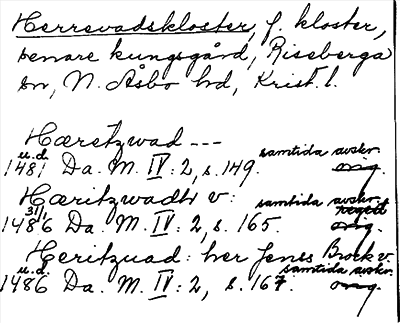 Herrevadskloster, f. kloster,
senare kungsgård, Risseberga
sn, N. Åsbo hd, Krist. l.
Hæretzwad ---
samtida avskr.
u.d.
1481 Da. M. IV: 2, s. 149. orig.
Hæritzwadh v: samtida avskr.
31/1
1486 Da. M. IV: 2, s. 165. orig.
Heritzuad: her Jens Brock v.
u.d. samtida avskr.
1486 Da. M. IV: 2, s. 167. orig.